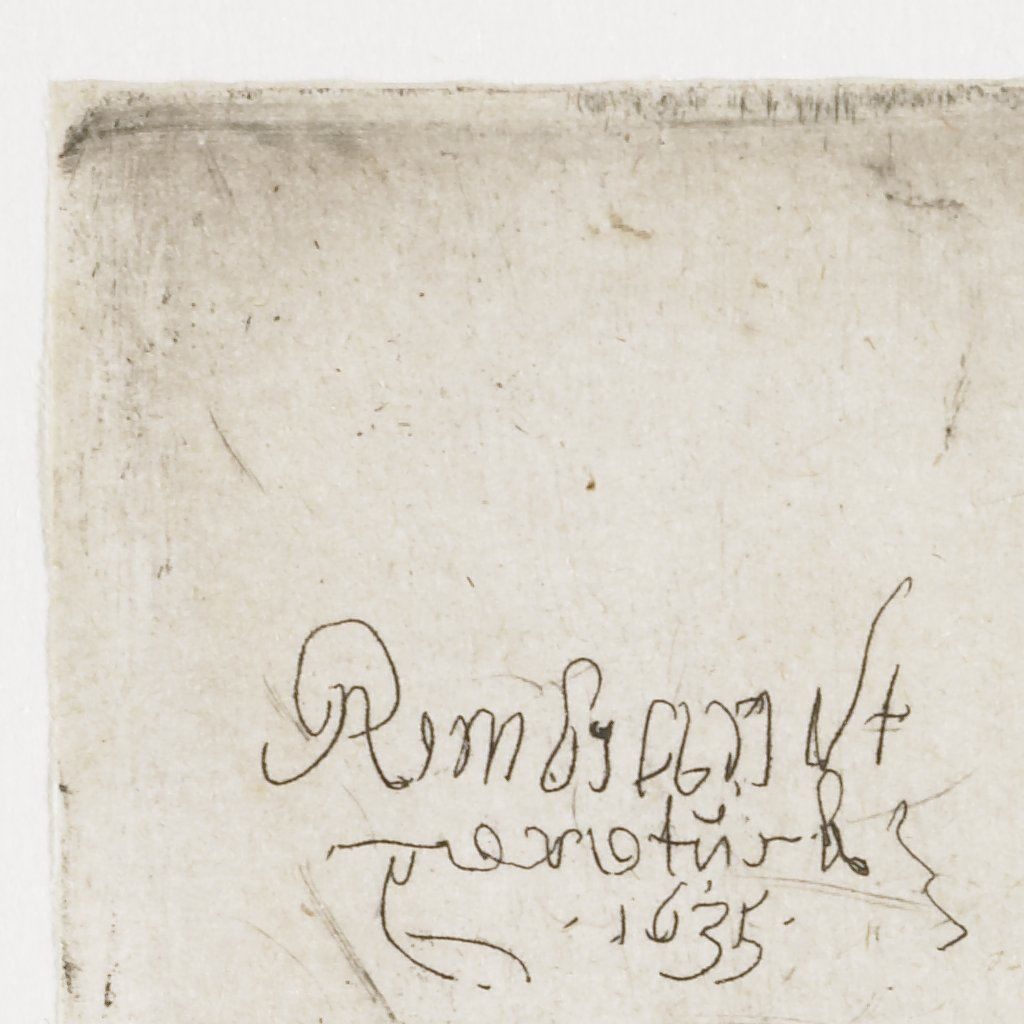 Rembrandt
geretŭck
1635